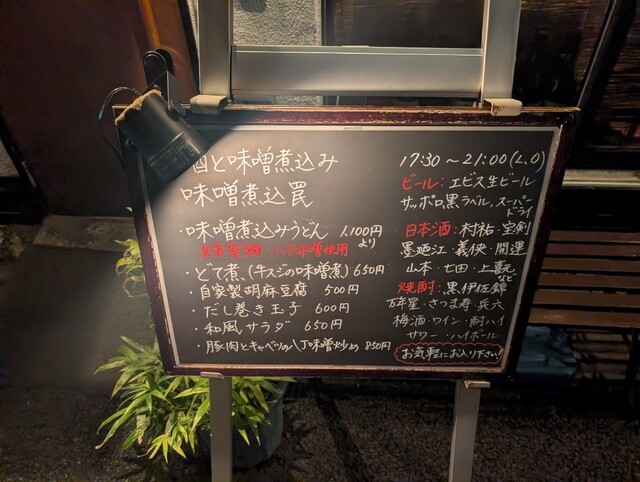 酒と味噌煮込み
味噌煮込罠
・味噌煮込みうどん 1,100円より
自家製麺・八丁味噌使用
・どて煮(牛スジの味噌煮) 650円
・自家製胡麻豆腐 500円
・だし巻き玉子 600円
・和風サラダ 650円
・豚肉とキャベツの八丁味噌炒め 850円
17:30～21:00(L.O)
ビール:エビス生ビール
サッポロ黒ラベル、スーパードライ
日本酒:村祐・宝剣
墨廼江・義侠・開運
山本・七田・上喜元など
焼酎:黒伊佐錦
万年星・さつま寿・兵六
梅酒・ワイン・酎ハイ
サワー・ハイボール
お気軽にお入り下さい!